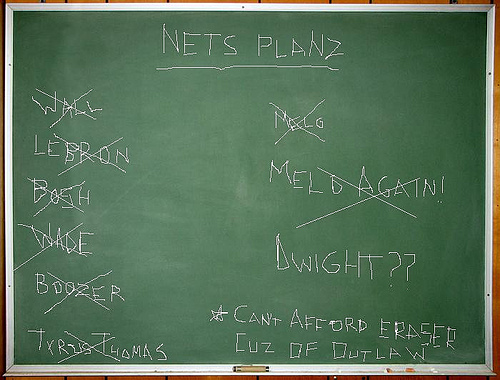 NETS PLANZ
WALL
LEBRON
BOSH
WADE
BOOZER
TYRUS THOMAS
MELO
MELO AGAIN!
DWIGHT??
* CANT AFFORD ERASER
CUZ OF OUTLAW